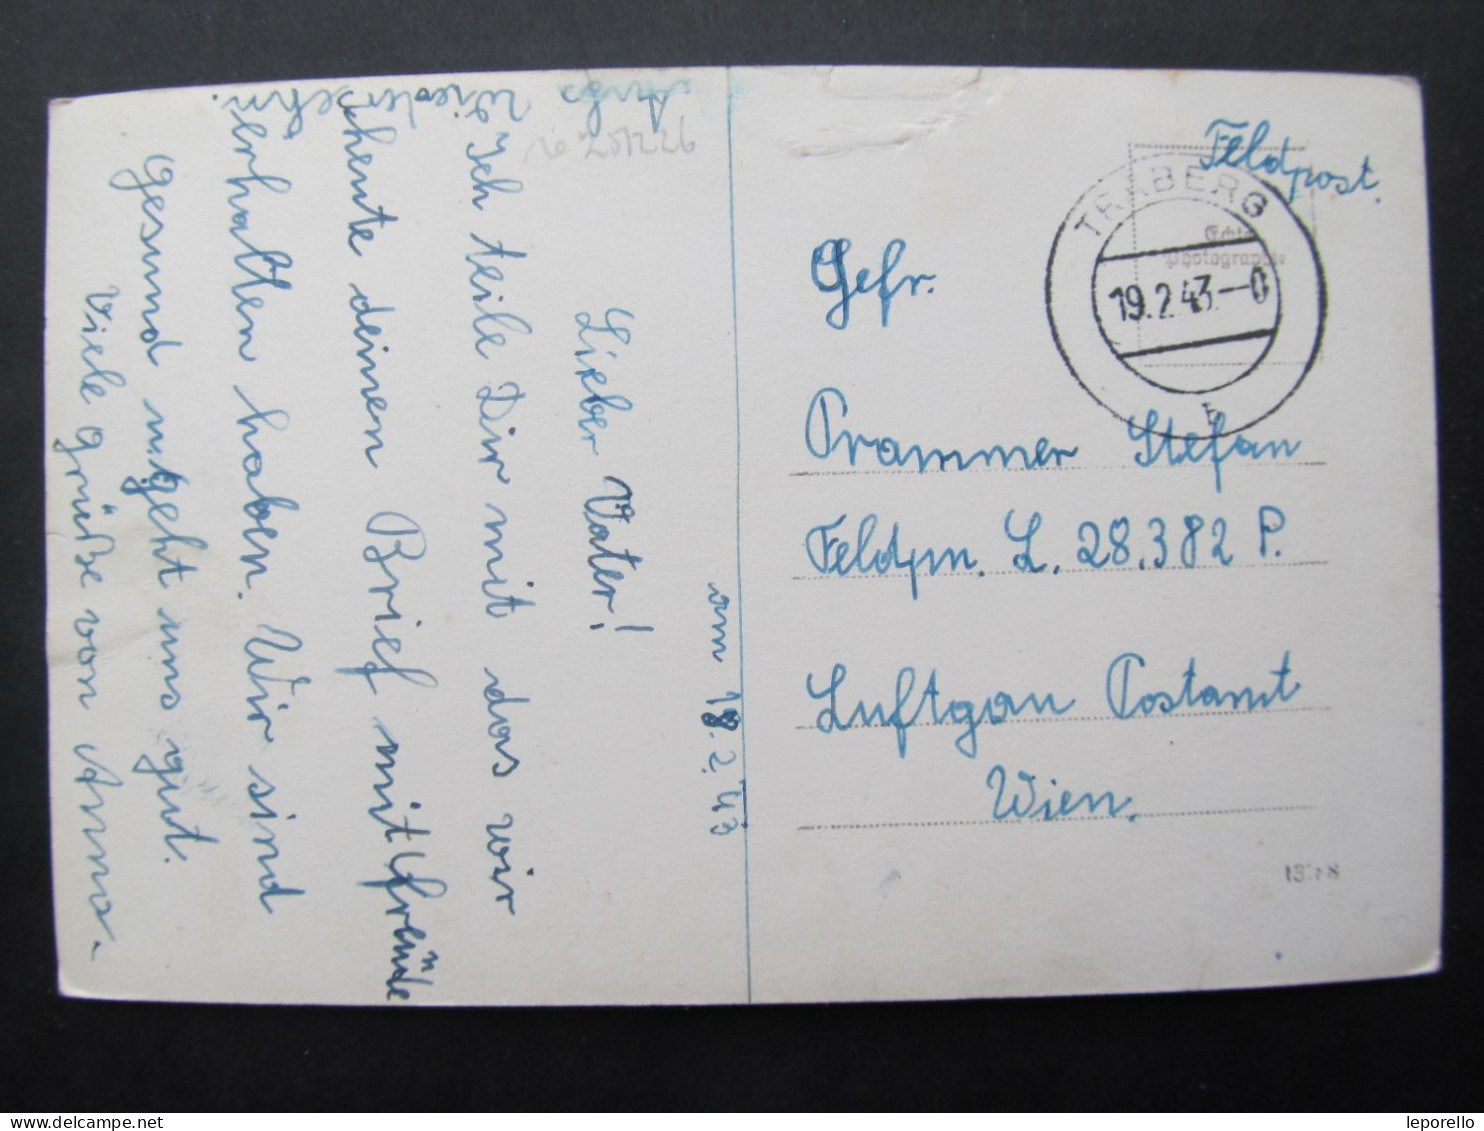 am 18.2.43
Lieber Vater!
Ich teile Dir mit das wir
heute deinen Brief mit freude
n
erhalten haben. Wir sind
gesund u. geht uns gut.
Viele Grüße von Anna.
Aufs
Wieder
sehn.
Feldpost.
TRABERG
19.2.43.--0
Echte
Photographie
Gefr.
Prammer Stefan
Feldpn. L. 28.382 P.
Luftgau Postamt
Wien.
delcampe.net
leporello